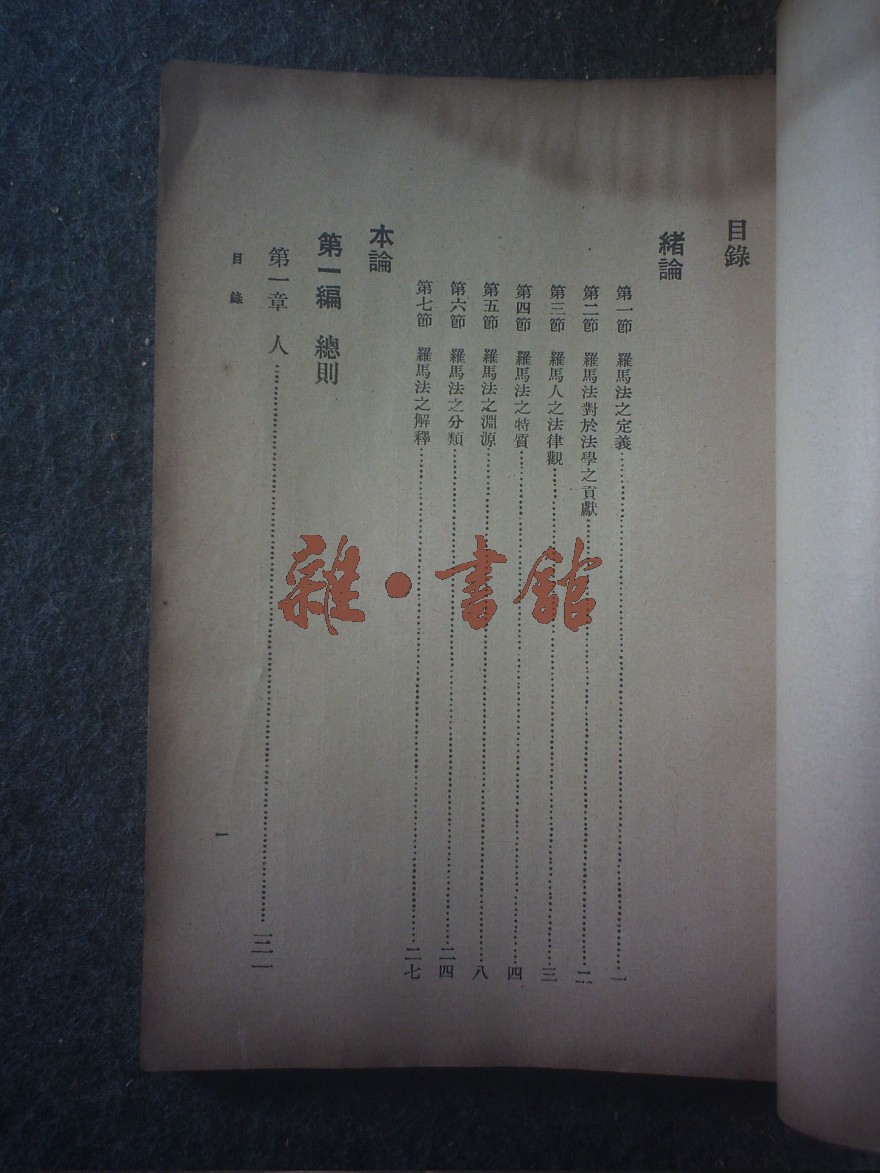 目錄
緒論
第一節　羅馬法之定義……一
第二節　羅馬法對於法學之貢獻……二
第三節　羅馬人之法律觀……三
第四節　羅馬法之特質……四
第五節　羅馬法之淵源……八
第六節　羅馬法之分類……二四
第七節　羅馬法之解釋……二七
本論
第一編　總則
第一章　人……三一
目錄
一
雜・書館